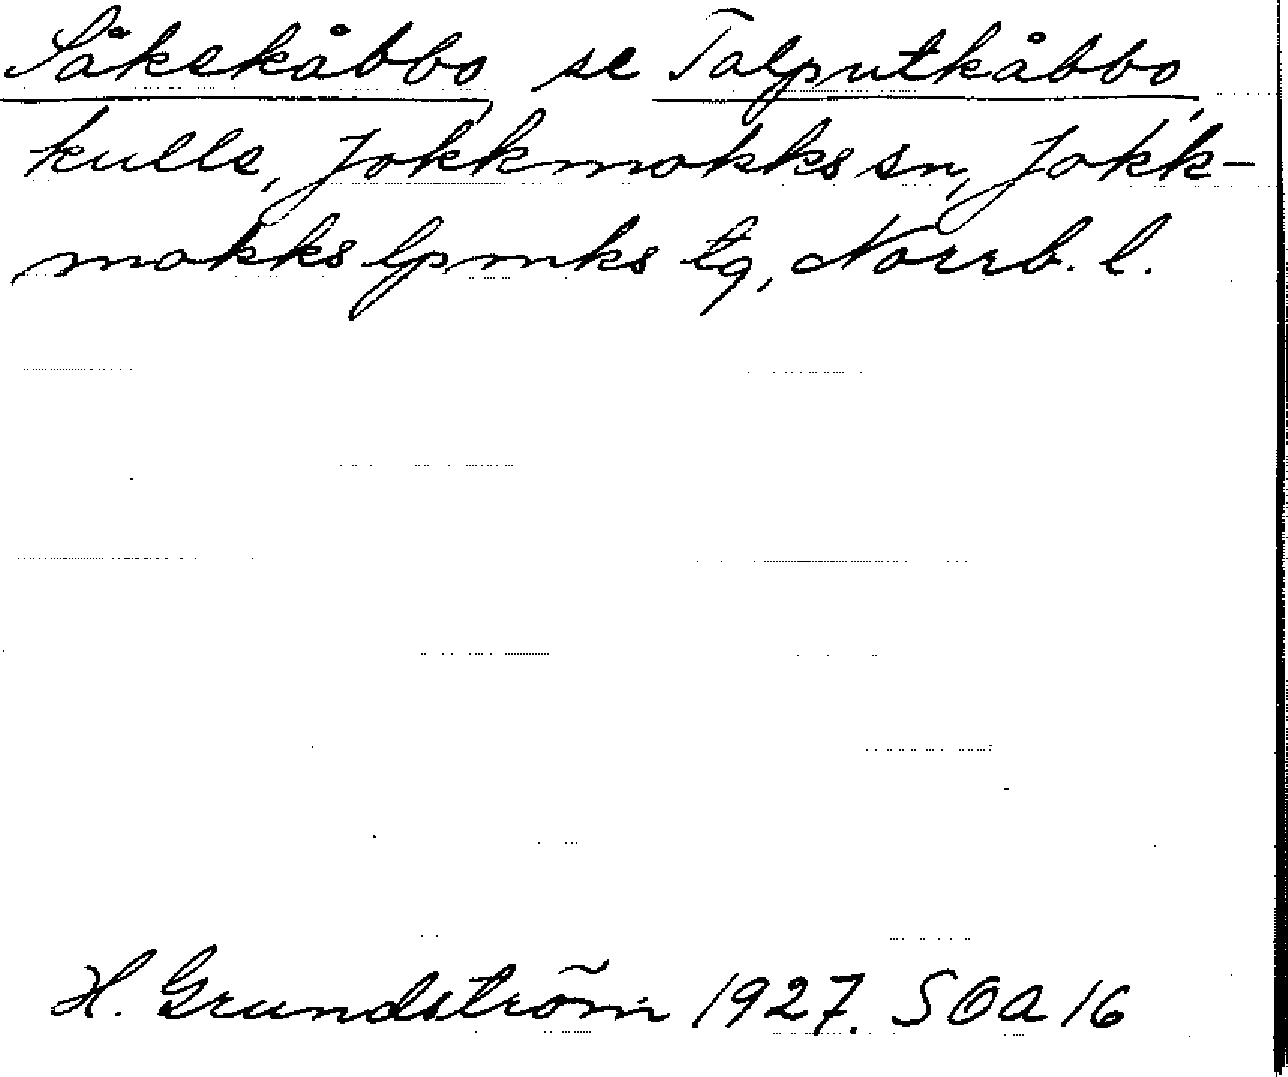 Såkekåbbo se Talputkåbbo,
kulle, Jokkmokks sn, Jokk-
mokks lpmks tg, Norrb. l.
H. Grundström 1927. SOA 16